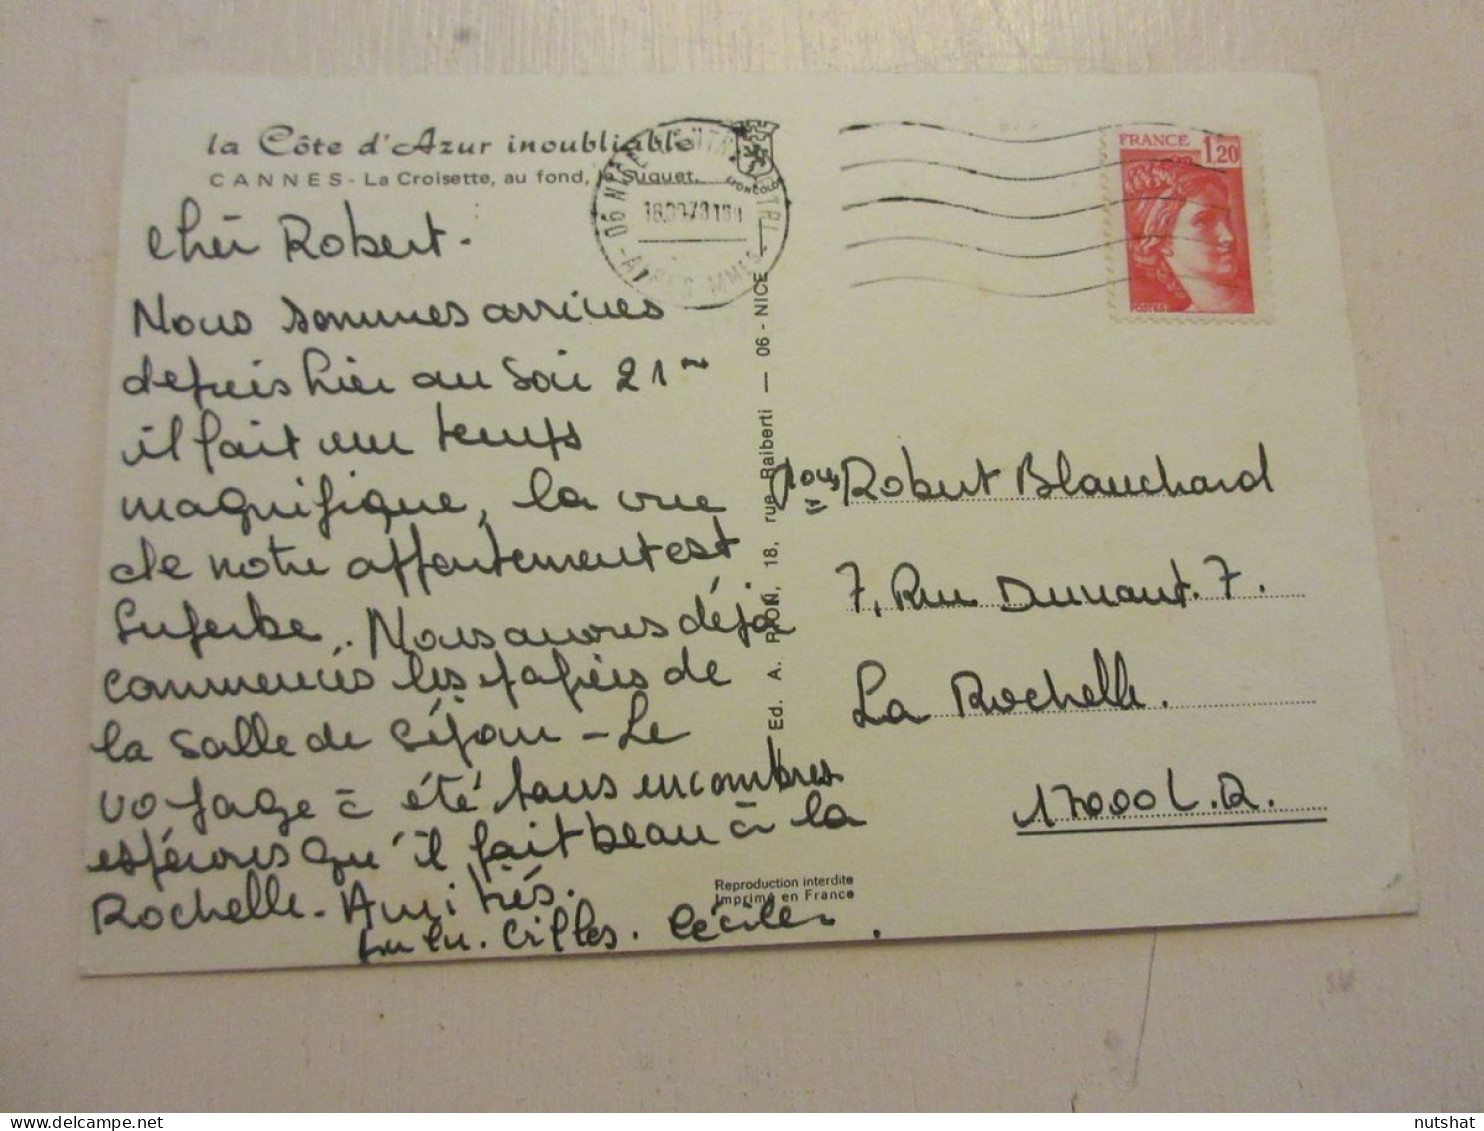 la Côte d'Azur inoubliable
CANNES - La Croisette, au fond, le Suquet.
Cher Robert.
Nous sommes arrivés
depuis hier au soir 21
il fait un temps
magnifique, la vue
de notre appartement est
superbe. Nous avons déjà
commencés les papiers de
la salle de séjour - Le
voyage à été sans encombres
espérons qu'il fait beau à la
Rochelle. Amitiés.
Lulu. Gilles. Cécile.
Ed. A. PION, 18, rue Raiberti — 06 - NICE
Reproduction interdite
Imprimé en France
06 NICE
ALPES MMES
FRANCE 1,20
POSTES
Robert Blanchard
7, Rue Dunant. 7.
La Rochelle.
17000 L.R.
nutshat